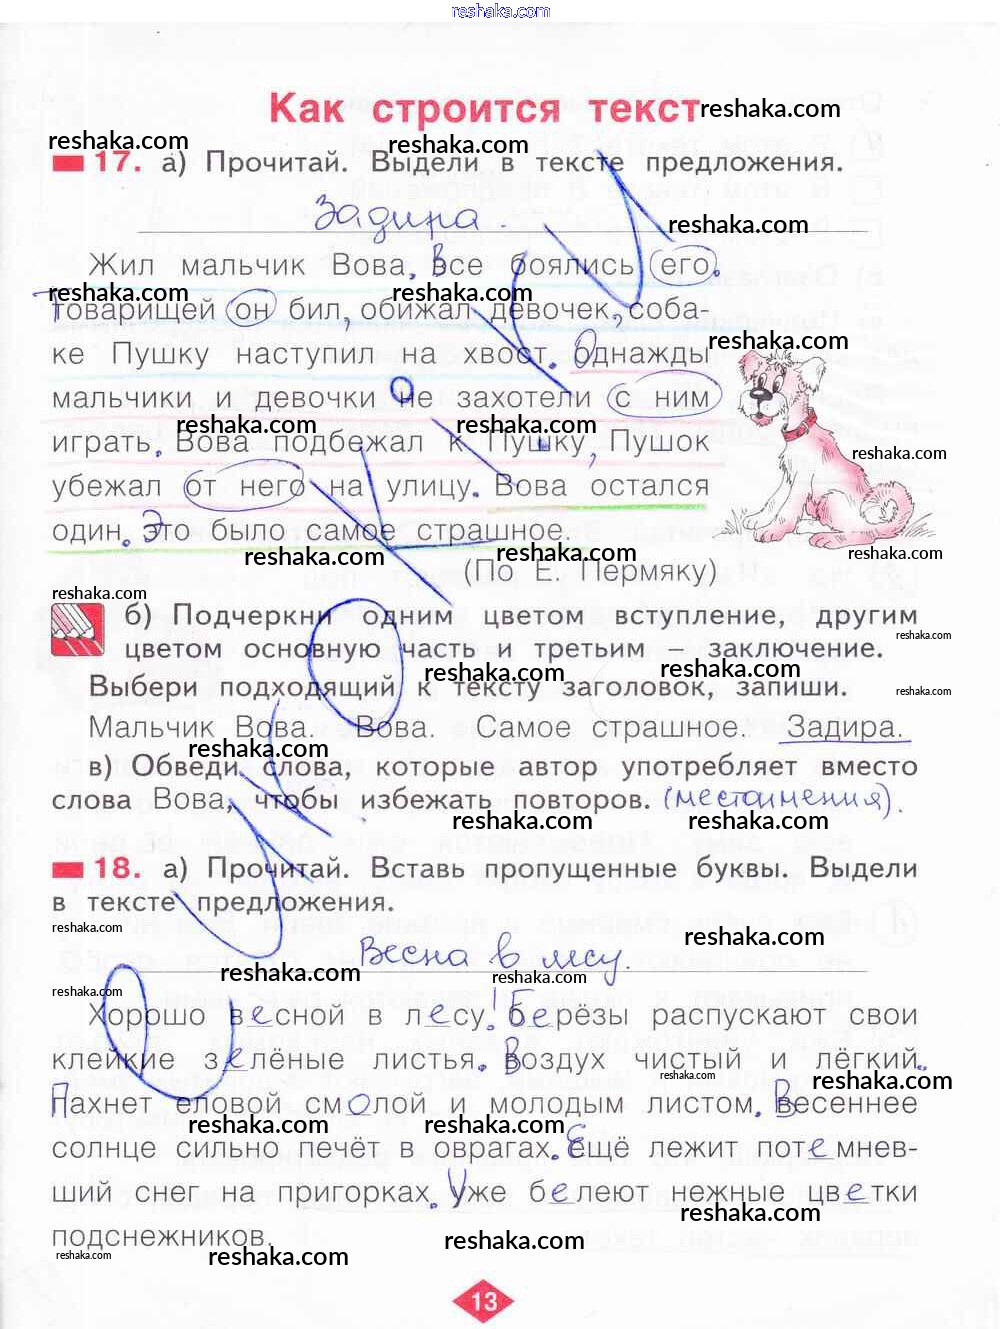 reshaka.com
Как строится текст
reshaka.com
reshaka.com reshaka.com
17. а) Прочитай. Выдели в тексте предложения.
Задира.
reshaka.com
Жил мальчик Вова. Все боялись его.
reshaka.com reshaka.com
Товарищей он бил, обижал девочек, соба-
reshaka.com
ке Пушку наступил на хвост. Однажды
мальчики и девочки не захотели с ним
reshaka.com reshaka.com
играть. Вова подбежал к Пушку, Пушок
reshaka.com
убежал от него на улицу. Вова остался
один. Это было самое страшное.
reshaka.com reshaka.com reshaka.com
(По Е. Пермяку)
reshaka.com
б) Подчеркни одним цветом вступление, другим
reshaka.com
цветом основную часть и третьим – заключение.
reshaka.com reshaka.com
Выбери подходящий к тексту заголовок, запиши.
reshaka.com
Мальчик Вова. Вова. Самое страшное. Задира.
reshaka.com
в) Обведи слова, которые автор употребляет вместо
слова Вова, чтобы избежать повторов. (местоимения).
reshaka.com reshaka.com
18. а) Прочитай. Вставь пропущенные буквы. Выдели
в тексте предложения.
reshaka.com
reshaka.com
Весна в лесу.
reshaka.com reshaka.com
reshaka.com
Хорошо весной в лесу! Берёзы распускают свои
клейкие зелёные листья. Воздух чистый и лёгкий.
reshaka.com reshaka.com
Пахнет еловой смолой и молодым листом. Весеннее
reshaka.com reshaka.com
солнце сильно печёт в оврагах. Ещё лежит потемнев-
ший снег на пригорках. Уже белеют нежные цветки
reshaka.com
подснежников.
reshaka.com reshaka.com reshaka.com
13